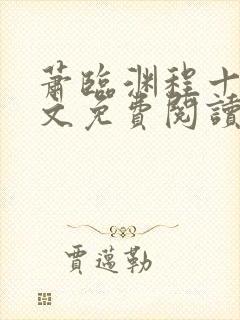 蕭臨渊程十
文免費閱讀
賈邁勒